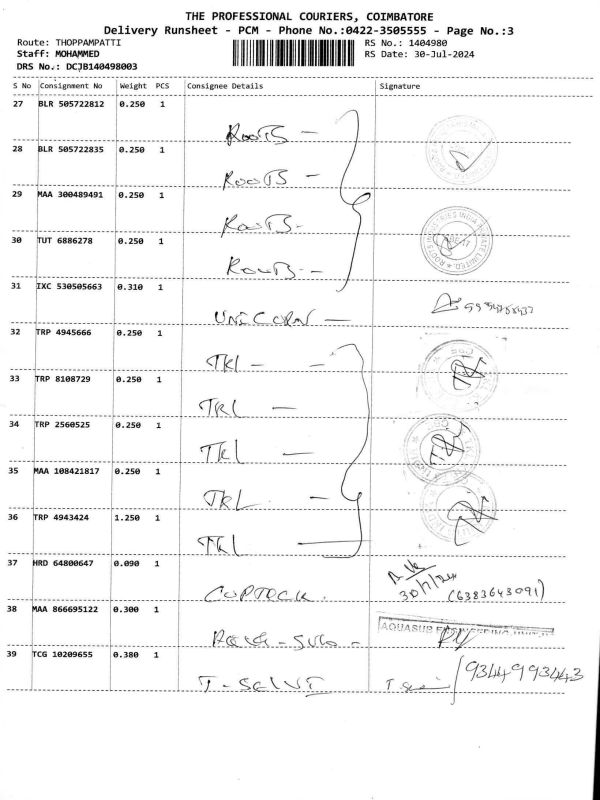 THE PROFESSIONAL COURIERS, COIMBATORE
Delivery Runsheet - PCM - Phone No.:0422-3505555 - Page No.:3
Route: THOPPAMPATTI
RS No.: 1404980
Staff: MOHAMMED
RS Date: 30-Jul-2024
DRS No.: DCJB140498003
S No Consignment No Weight PCS Consignee Details Signature
27 BLR 505722812 0.250 1
ROOTS -
28 BLR 505722835 0.250 1
ROOTS -
29 MAA 300489491 0.250 1
ROOTS -
30 TUT 6886278 0.250 1
ROOTS -
31 IXC 530505663 0.310 1
UNICORN -
32 TRP 4945666 0.250 1
TKL - -
33 TRP 8108729 0.250 1
TKL -
34 TRP 2560525 0.250 1
TKL -
35 MAA 108421817 0.250 1
TKL -
36 TRP 4943424 1.250 1
TKL -
37 HRD 64800647 0.090 1
30/7/24
(6383643091)
38 MAA 866695122 0.300 1
AQUASUB ENGINEERING UNIT II
39 TCG 10209655 0.380 1
T - SELVI
9344993443